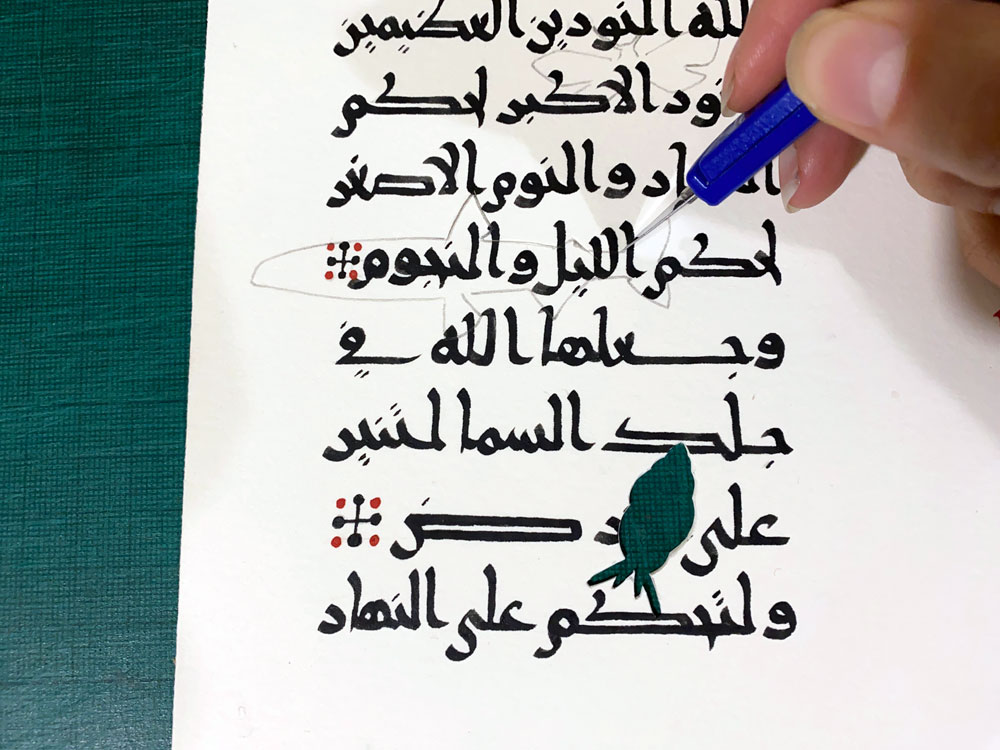 الله النورين العظيمين
الاكبر لحكم
والنور الاصغر
لحكم الليل والنجوم
وجعلها الله في
جلد السما لتنير
على
ولتحكم على النهار